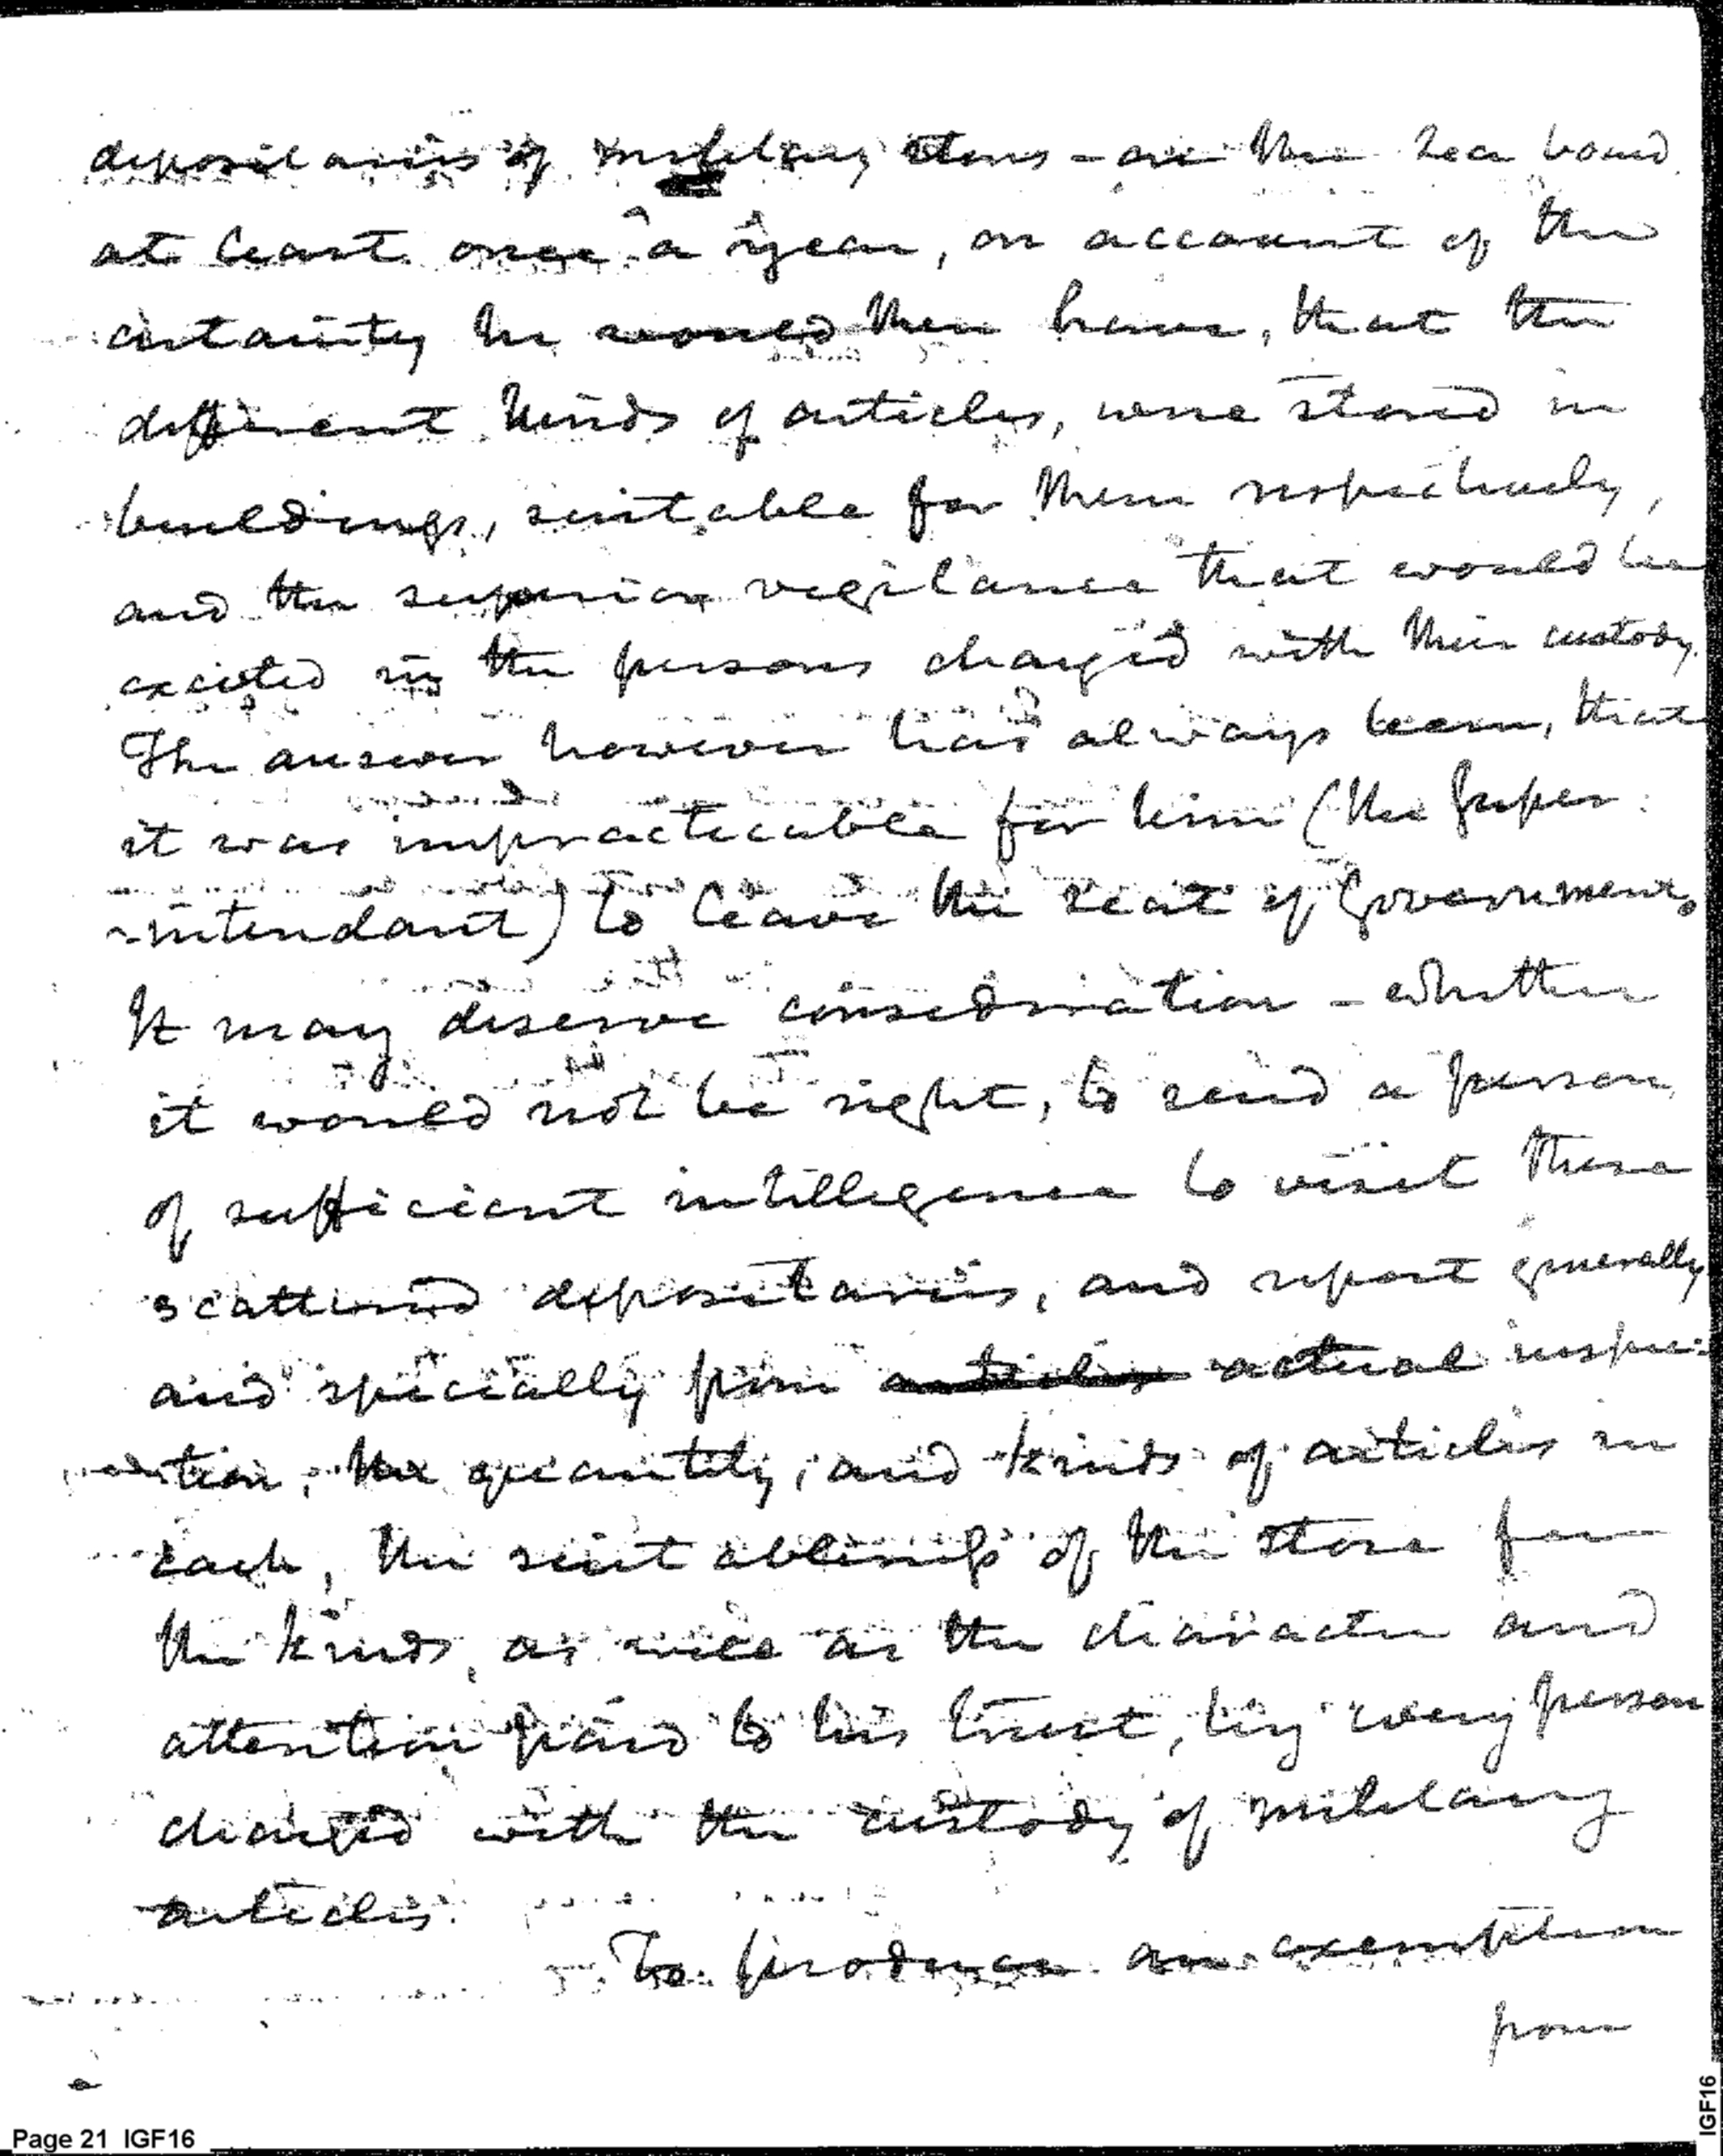 depositaries of military stores - on the Sea board
at least once a year, on account of the
certainty he would then have, that the
different kinds of articles, were stored in
buildings, suitable for them respectively,
and the superior vigilance that would be
excited in the persons charged with their custody.
The answer however has always been, that
it was impracticable for him (the Super-
-intendant) to leave the seat of Government.
It may deserve consideration - whether
it would not be right, to send a person
of sufficient intilligence to visit these
scattered depositaries, and report generally
and specially from articles actual inspec-
-tion, the quantity, and kinds of articles in
each, the suitableness of the store for
the kinds, as well as the character and
attention paid to his trust, by every person
charged with the custody of military
articles.
To produce an exemption
from
Page 21 IGF16
IGF16